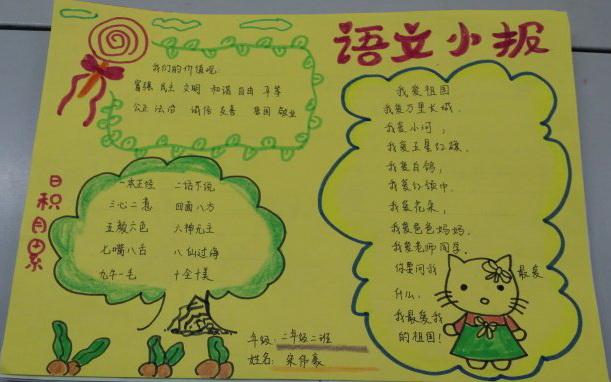 语文小报
我们的价值观:
富强 民主 文明 和谐 自由 平等
公正 法治 诚信 友善 爱国 敬业
日积月累
一本正经 二话不说
三心二意 四面八方
五颜六色 六神无主
七嘴八舌 八仙过海
九牛一毛 十全十美
我爱祖国
我爱万里长城,
我爱小河;
我爱五星红旗,
我爱白鸽;
我爱红领巾,
我爱花朵;
我爱爸爸妈妈,
我爱老师同学.
你要问我 最爱
什么,
我最爱我
的祖国!
年级:二年级二班
姓名:宋伟豪